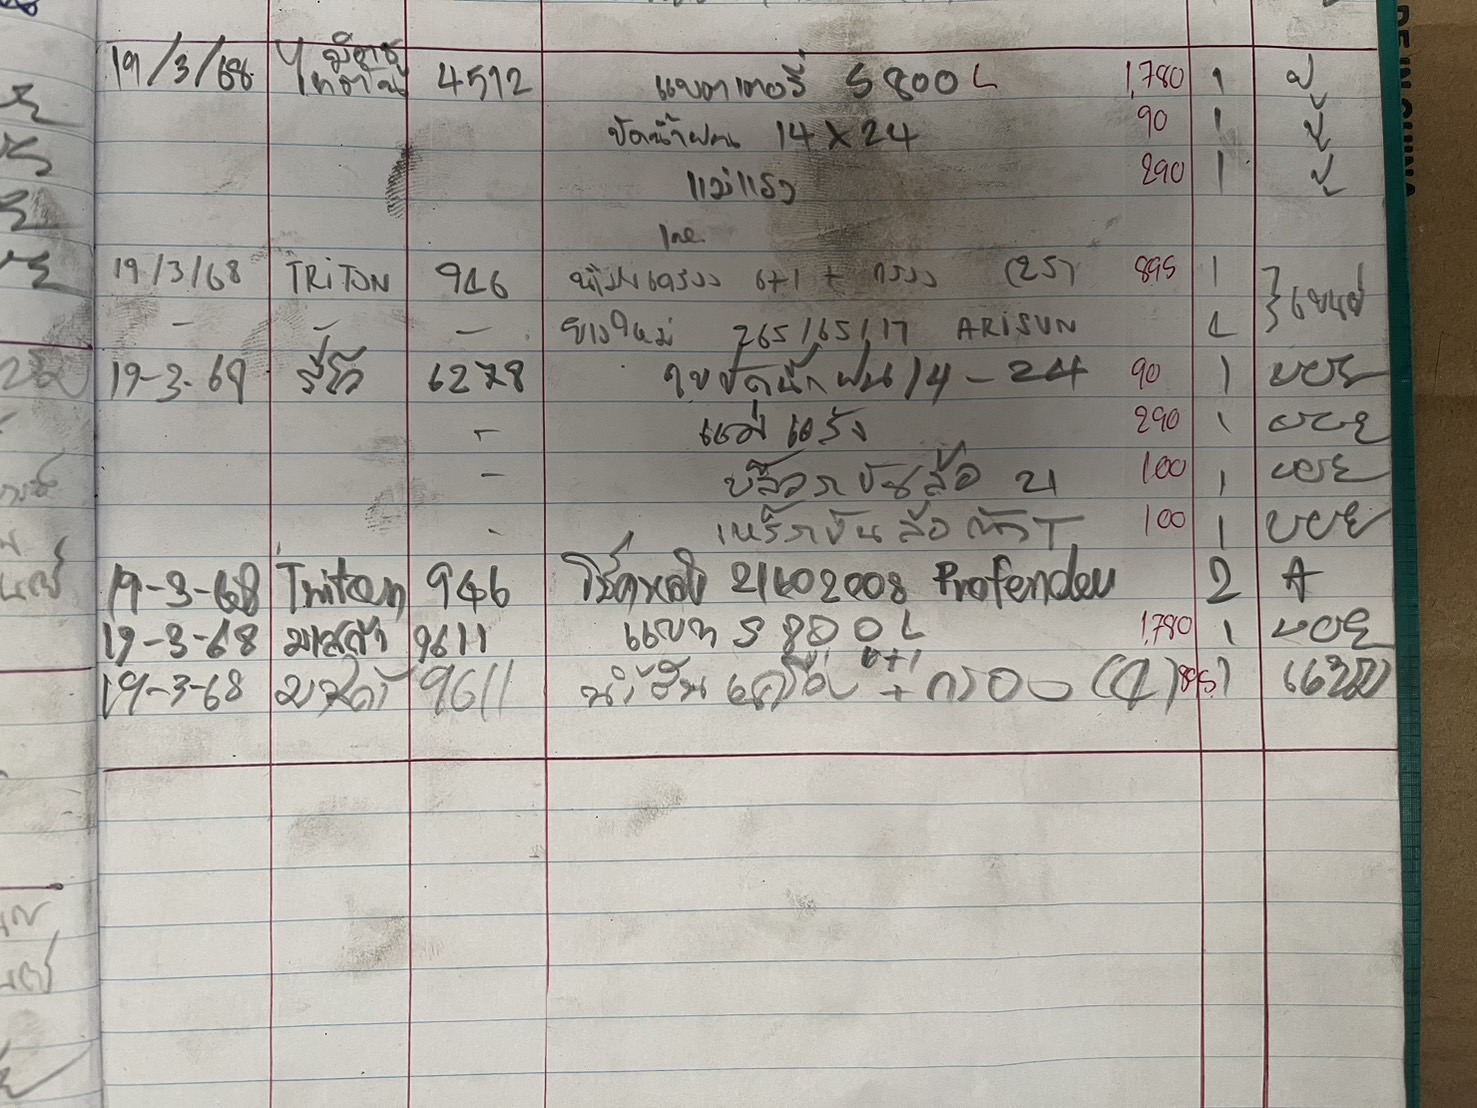 19/3/68 4512 แบตเตอรี่ S 800 L 1,780 1 ปู
ปัดน้ำฝน 14 x 24 90 1 ปู
แม่แรง 290 1 ปู
19/3/68 TRITON 946 6+1 + กรอง (25) 895 1
- - - ยางใหม่ 265/65/17 ARISUN 4
19-3-68 รีโว่ 6278 ใบปัดน้ำฝน 14 - 24 90 1
- แม่แรง 290 1
- บล็อกขันล้อ 21 100 1
- เหล็กขันล้อ ตัว T 100 1
19-3-68 Triton 946 โช๊คหลัง 21602008 Profender 2 A
19-3-68 มาสด้า 9611 แบต S 800 L 1,780 1
19-3-68 มาสด้า 9611 น้ำมันเครื่อง 6+1 + กรอง 895 1